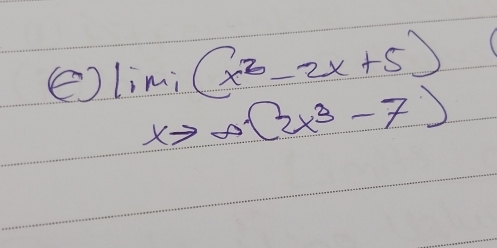 e) limi (x² - 2x + 5)
x → ∞ (2x³ - 7)